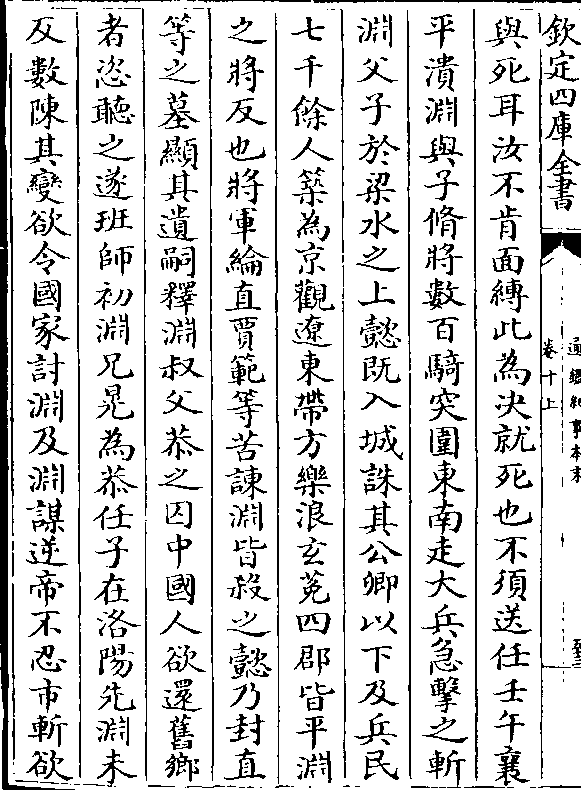 欽定四庫全書
通鑑紀事本末
卷十上
與死耳汝不肯面縛此為决就死也不須送任壬午襄
平潰淵與子脩將數百騎突圍東南走大兵急擊之斬
淵父子於梁水之上懿既入城誅其公卿以下及兵民
七千餘人築為京觀遼東帶方樂浪玄菟四郡皆平淵
之將反也將軍綸直賈範等苦諫淵皆殺之懿乃封直
等之墓顯其遺嗣釋淵叔父恭之囚中國人欲還舊鄉
者恣聽之遂班師初淵兄晃為恭任子在洛陽先淵未
反數陳其變欲令國家討淵及淵謀逆帝不忍市斬欲